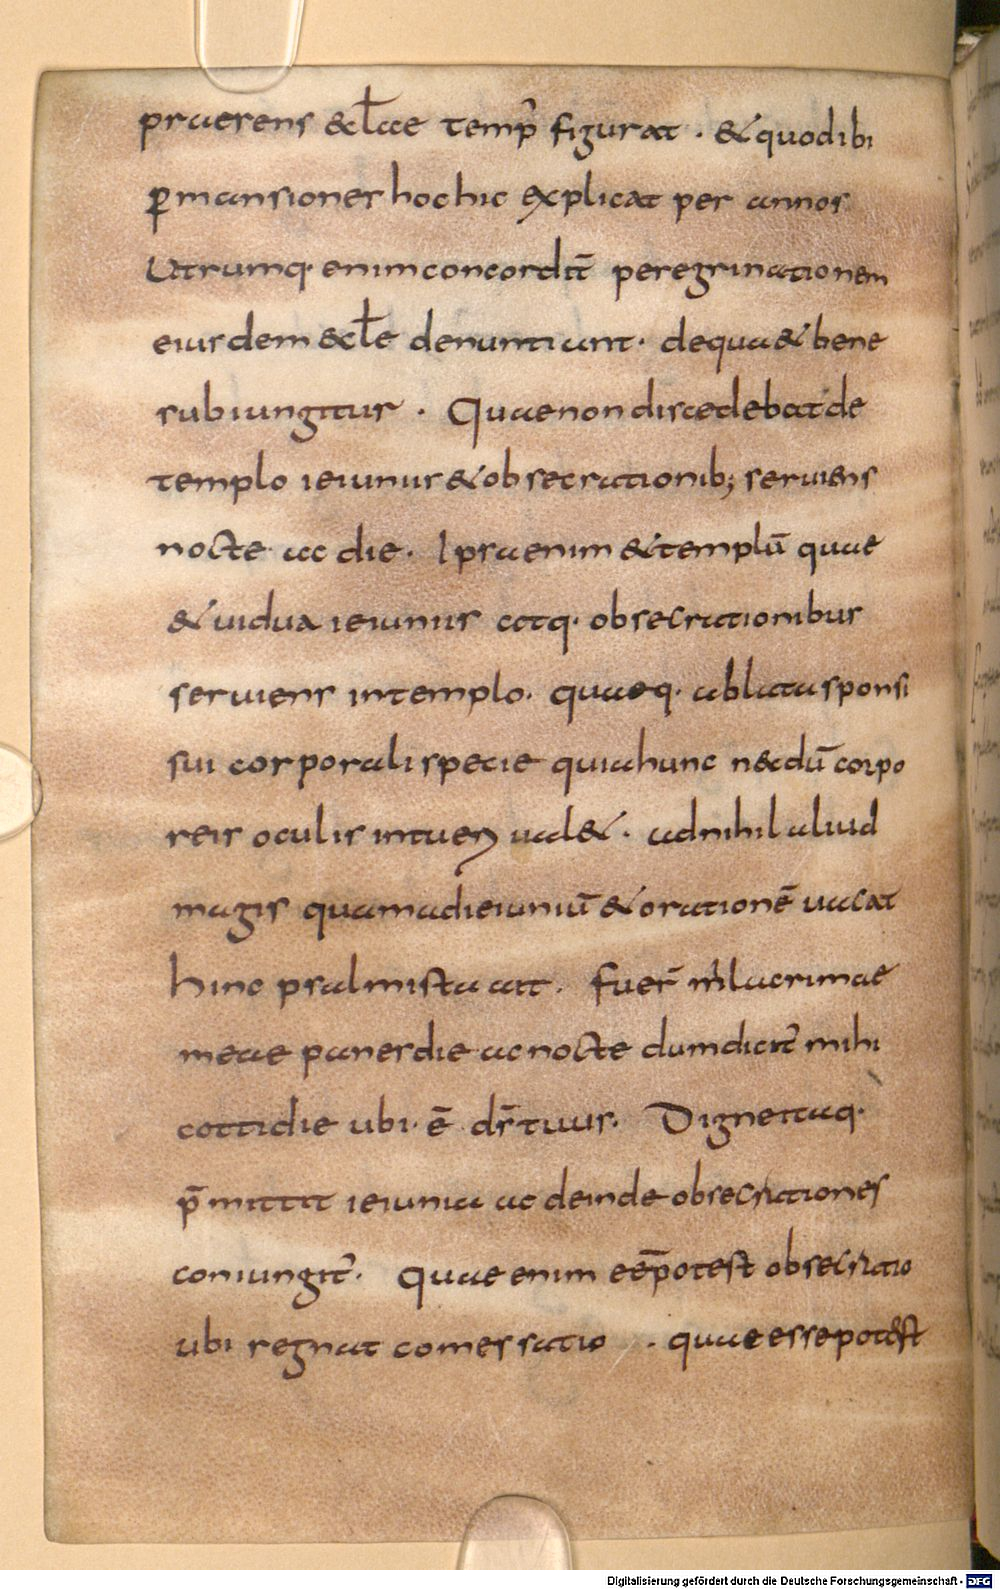 praesens &cl̄ae temp̄ figurat . & quod ibi
ꝑ mansiones hoc hic explicat per annos
Utrumq· enim concordit̄ peregrinationem
eiusdem &cl̄e denuntiant · de qua & bene
subiungitur . Quae non discedebat de
templo ieiuniis & obsecrationib; seruiens
nocte ac die · Ipsa enim & templū quae
& uidua ieiuniis atq· obsecrationibus
seruiens in templo · quaeq· ablata sponsi
sui corporali specie quia hunc necdū corpo
reis oculis intueri ual& · ad nihil aliud
magis quam ad ieiuniū & orationē uacat
hinc psalmista ait . fuer̄ m̄ lacrimae
meae panes die ac nocte dum dicit̄ mihi
cottidie ubi · ē d̄s tuus · Digne itaq·
p̄mittit ieiunia ac deinde obsecrationes
coniungit̄ · Quae enim eē potest obsecratio
ubi regnat comessatio . quae esse potest
Digitalisierung gefördert durch die Deutsche Forschungsgemeinschaft - DFG